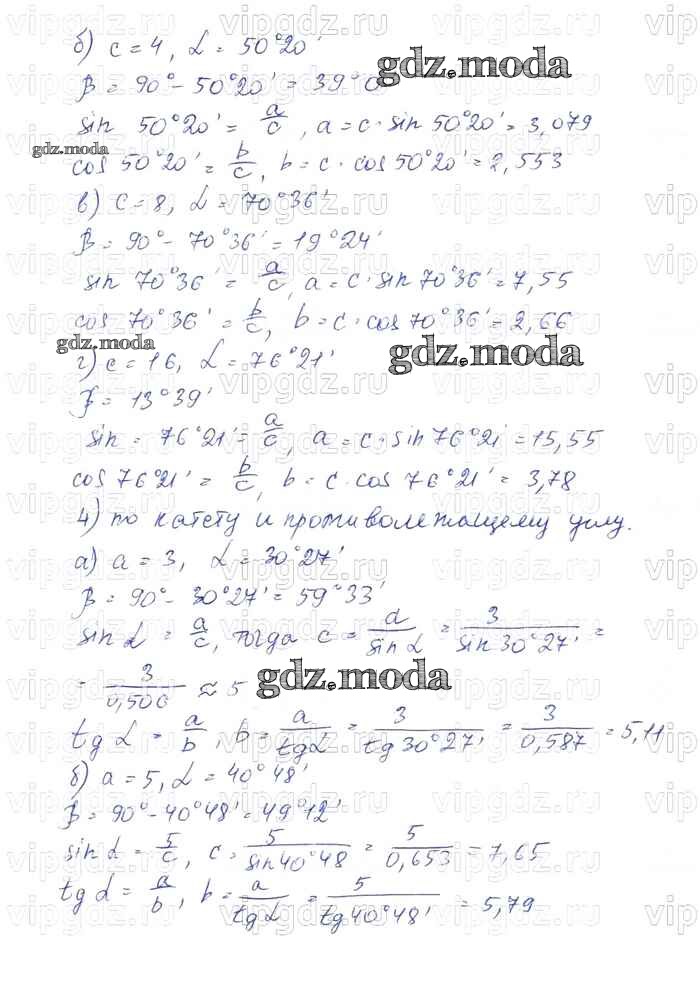 б) c = 4, α = 50°20'
β = 90° - 50°20' = 39°
sin 50°20' = a/c, a = c · sin 50°20' = 3,079
cos 50°20' = b/c, b = c · cos 50°20' = 2,553
в) c = 8, α = 70°36'
β = 90° - 70°36' = 19°24'
sin 70°36' = a/c, a = c · sin 70°36' = 7,55
cos 70°36' = b/c, b = c · cos 70°36' = 2,66
г) c = 16, α = 76°21'
β = 13°39'
sin = 76°21' = a/c, a = c · sin 76°21 = 15,55
cos 76°21' = b/c, b = c · cos 76°21' = 3,78
4) по катету и противолежащему углу.
а) a = 3, α = 30°27'
β = 90° - 30°27' = 59°33'
sin α = a/c, тогда c = a/sin α = 3/sin 30°27' =
= 3/0,506 ≈ 5
tg α = a/b, b = a/tg α = 3/tg 30°27' = 3/0,587 = 5,11
б) a = 5, α = 40°48'
β = 90° - 40°48' = 49°12'
sin α = 5/c, c = 5/sin 40°48 = 5/0,653 = 7,65
tg α = a/b, b = a/tg α = 5/tg 40°48' = 5,79
gdz.moda
gdz.moda
gdz.moda
gdz.moda
gdz.moda
vipgdz.ru